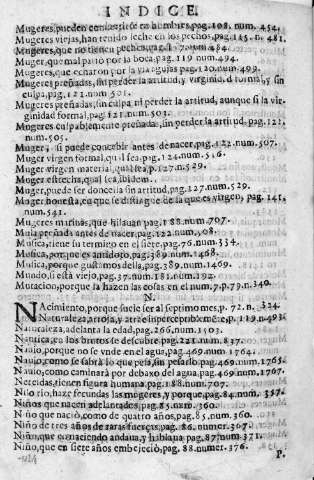 INDICE.
Mugeres, pueden conuertirse en hombres, pag. 108. num. 454.
Mugeres viejas, han tenido leche en los pechos, pag. 115. n. 481.
Mugeres, que no tienen pechos, pag. num. 484.
Muger, que mal pario por la boca, pag. 119 num. 494.
Mugeres, que echaron por la via pag. 120. num. 499.
Mugeres preñadas, sin perder la artitud, y virginid. d formal, y sin
culpa, pag. 121. num. 501.
Mugeres preñadas, sin culpa, ni perder la artitud, aunque si la vir-
ginidad formal, pag. 121. num. 503.
Mugeres culpablemente preñadas, sin perder la artitud, pag. 122,
num. 505.
Muger, si puede concebir antes de nacer, pag. 122. num. 507.
Muger virgen formal, qual sea, pag. 124. num. 516.
Muger virgen material, qual sea, p. 127. n. 529.
Muger estrecha, qual sea, ibidem.
Muger, puede ser doncella sin artitud, pag. 127. num. 529.
Muger honesta, en que se distigue de la que es virgen, pag. 141,
num. 541.
Mugeres marinas, que hilauan pag. 188. num. 707.
Mula preñada antes de nacer, pag. 122. num. 508.
Musica, tiene su termino en el siete, pag. 76. num. 334.
Musica, porque es antidoto, pag. 389. num. 1468.
Musica, porque gustamos della, pag. 389. num. 1469.
Mundo, si está viejo, pag. 37. num. 181. num. 192.
Mutacion, porque la hazen las cosas en el num. 7. p. 79. n. 340.
N.
NAcimiento, porque suele ser al septimo mes, p. 72. n. 324.
Naturaleza, prorumpe p. 119. n. 493.
Naturaleza, adelanta la edad, pag. 266. num. 1503.
Nautica, en los brutos se descubre, pag. 221. num. 837.
Nauio, porque no se vnde en el agua, pag. 469. num. 1764.
Nauio, como se sabrá lo que pesa, sin pesarlo, pag. 469. num. 1765.
Nauio, como caminará por debaxo del agua, pag. 469. num. 1767.
Nereidas, tienen figura humana, pag. 188. num. 707.
Nilo rio, haze fecundas las mugeres, y porque, pag. 84. num. 357.
Niños que nacen adelantados, pag. 85. num. 360.
Niño que nació, como de quatro años, pag. 85. num. 360.
Niño de tres años de raras fuerças, pag. 86. num. 367.
Niño, que en naciendo andaua, y hablaua pag. 87. num. 371.
Niño, que en siete años embejeció, pag. 88. num. 376.
P.